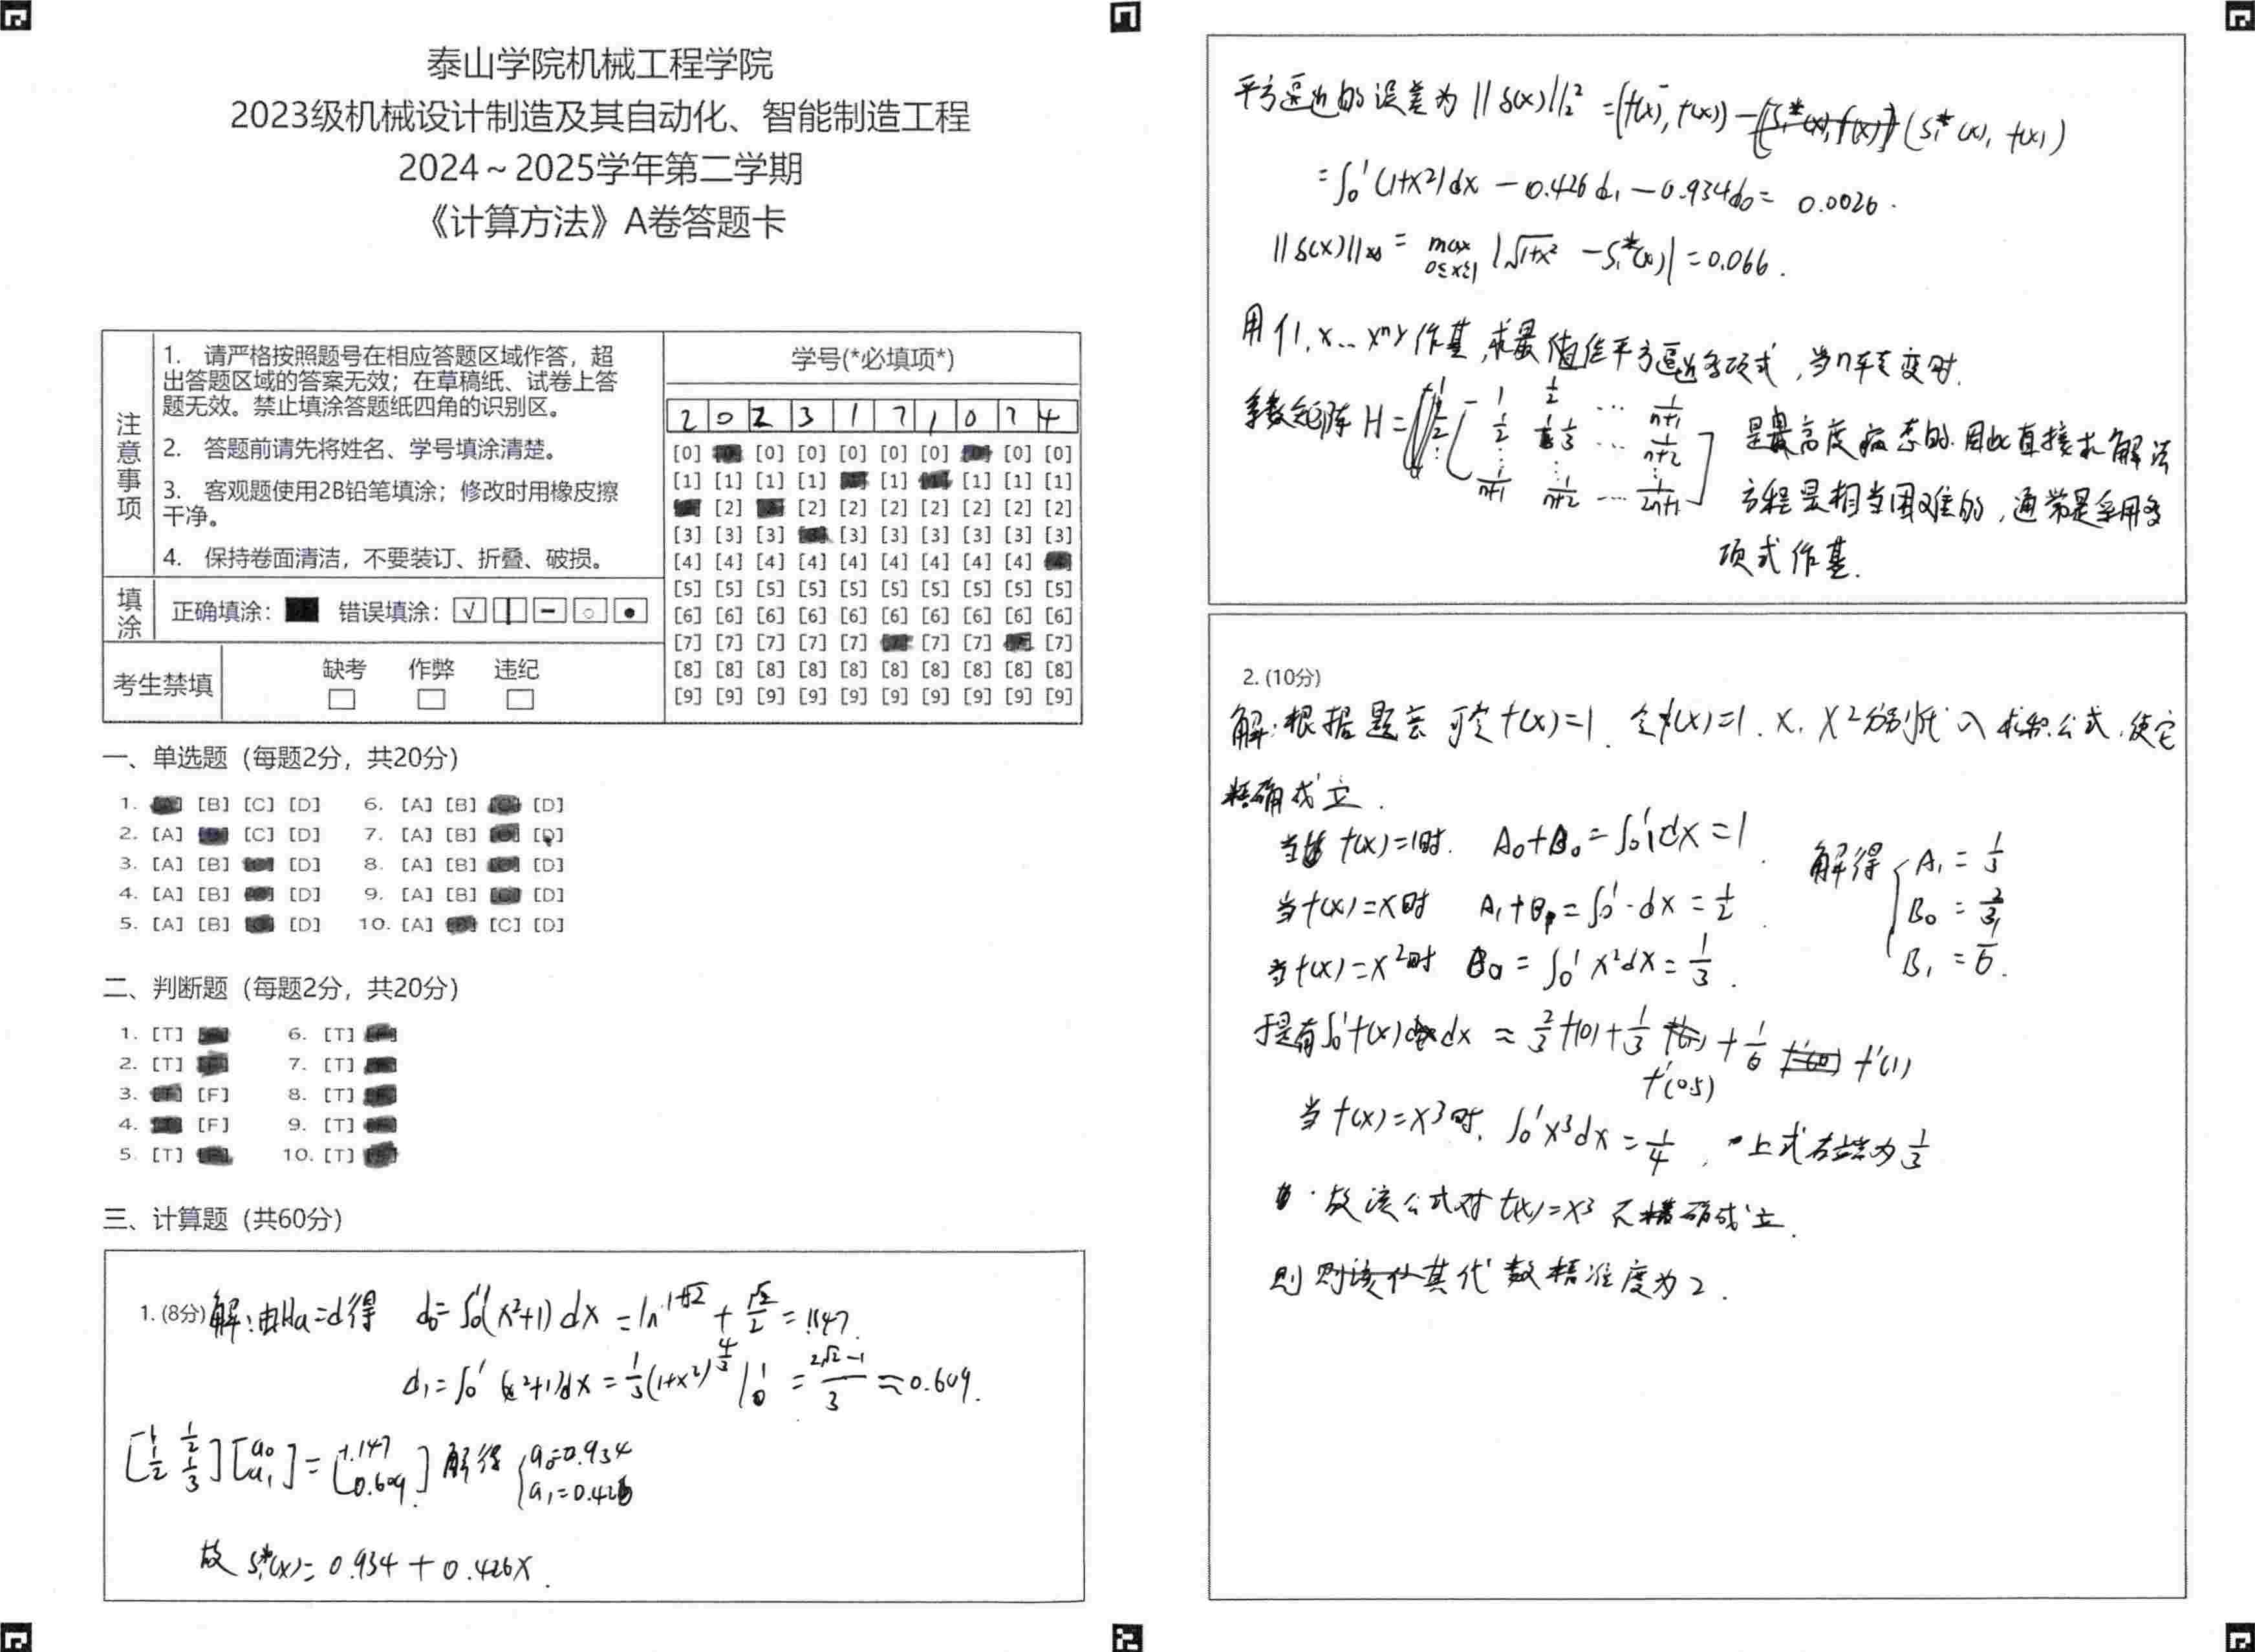 泰山学院机械工程学院
2023级机械设计制造及其自动化、智能制造工程
2024～2025学年第二学期
《计算方法》A卷答题卡
注意事项
1. 请严格按照题号在相应答题区域作答，超
出答题区域的答案无效；在草稿纸、试卷上答
题无效。禁止填涂答题纸四角的识别区。
2. 答题前请先将姓名、学号填涂清楚。
3. 客观题使用2B铅笔填涂；修改时用橡皮擦
干净。
4. 保持卷面清洁，不要装订、折叠、破损。
填涂 正确填涂： 错误填涂：
考生禁填 缺考 作弊 违纪
学号(*必填项*)
2 0 2 3 1 7 1 0 7 4
[0] [0] [0] [0] [0] [0] [0] [0]
[1] [1] [1] [1] [1] [1] [1] [1]
[2] [2] [2] [2] [2] [2] [2] [2]
[3] [3] [3] [3] [3] [3] [3] [3] [3]
[4] [4] [4] [4] [4] [4] [4] [4] [4]
[5] [5] [5] [5] [5] [5] [5] [5] [5] [5]
[6] [6] [6] [6] [6] [6] [6] [6] [6] [6]
[7] [7] [7] [7] [7] [7] [7] [7]
[8] [8] [8] [8] [8] [8] [8] [8] [8] [8]
[9] [9] [9] [9] [9] [9] [9] [9] [9] [9]
一、单选题（每题2分，共20分）
1. [B] [C] [D] 6. [A] [B] [D]
2. [A] [C] [D] 7. [A] [B] [D]
3. [A] [B] [D] 8. [A] [B] [D]
4. [A] [B] [D] 9. [A] [B] [D]
5. [A] [B] [D] 10. [A] [C] [D]
二、判断题（每题2分，共20分）
1. [T] 6. [T]
2. [T] 7. [T]
3. [F] 8. [T]
4. [F] 9. [T]
5. [T] 10. [T]
三、计算题（共60分）
1. (8分) 解：由Ha=d得 d₀=∫₀¹(x²+1)dx = ln 1+√2 + √2/2 = 1.147.
d₁=∫₀¹(x²+1)dx = 1/3(1+x²)^(4/3)|₀¹ = (2√2-1)/3 ≈0.609.
[1 1/2; 1/2 1/3][a₀; a₁] = [1.147; 0.609] 解得 {a₀=0.934 a₁=0.426
故 S₁*(x)= 0.934 + 0.426x.
平方逼近的误差为 ||δ(x)||₂² = (f(x), f(x)) − (S₁*(x), f(x))
= ∫₀¹(1+x²)dx − 0.426d₁ − 0.934d₀ = 0.0026.
||δ(x)||∞ = max 0≤x≤1 |√1+x² − S₁*(x)| = 0.066.
用{1, x … xⁿ}作基，求最值佳平方逼近多项式，当n车支变时.
系数矩阵 H = [1 1/2 … 1/(n+1); 1/2 1/3 … 1/(n+2); ⋮ ⋮ ⋮; 1/(n+1) 1/(n+2) … 1/(2n+1)] 是高度病态的. 因此直接求解法
方程是相当困难的，通常是采用多
项式作基.
2. (10分)
解：根据题意可定f(x)=1. 令f(x)=1. x. x²分别代入求积公式，使它
精确成立.
当f(x)=1时. A₀+B₀=∫₀¹1dx=1.
当f(x)=x时 A₁+B₀=∫₀¹·dx=1/2.
当f(x)=x²时 B₀=∫₀¹x²dx=1/3.
解得 {A₁=1/3 B₀=2/3 B₁=1/6.
于是有∫₀¹f(x)dx ≈ 2/3 f(0) + 1/3 f'(0.5) + 1/6 f'(1)
当f(x)=x³时. ∫₀¹x³dx=1/4, 上式右端为1/3
故该公式对f(x)=x³不精确成立.
则其代数精准度为2.